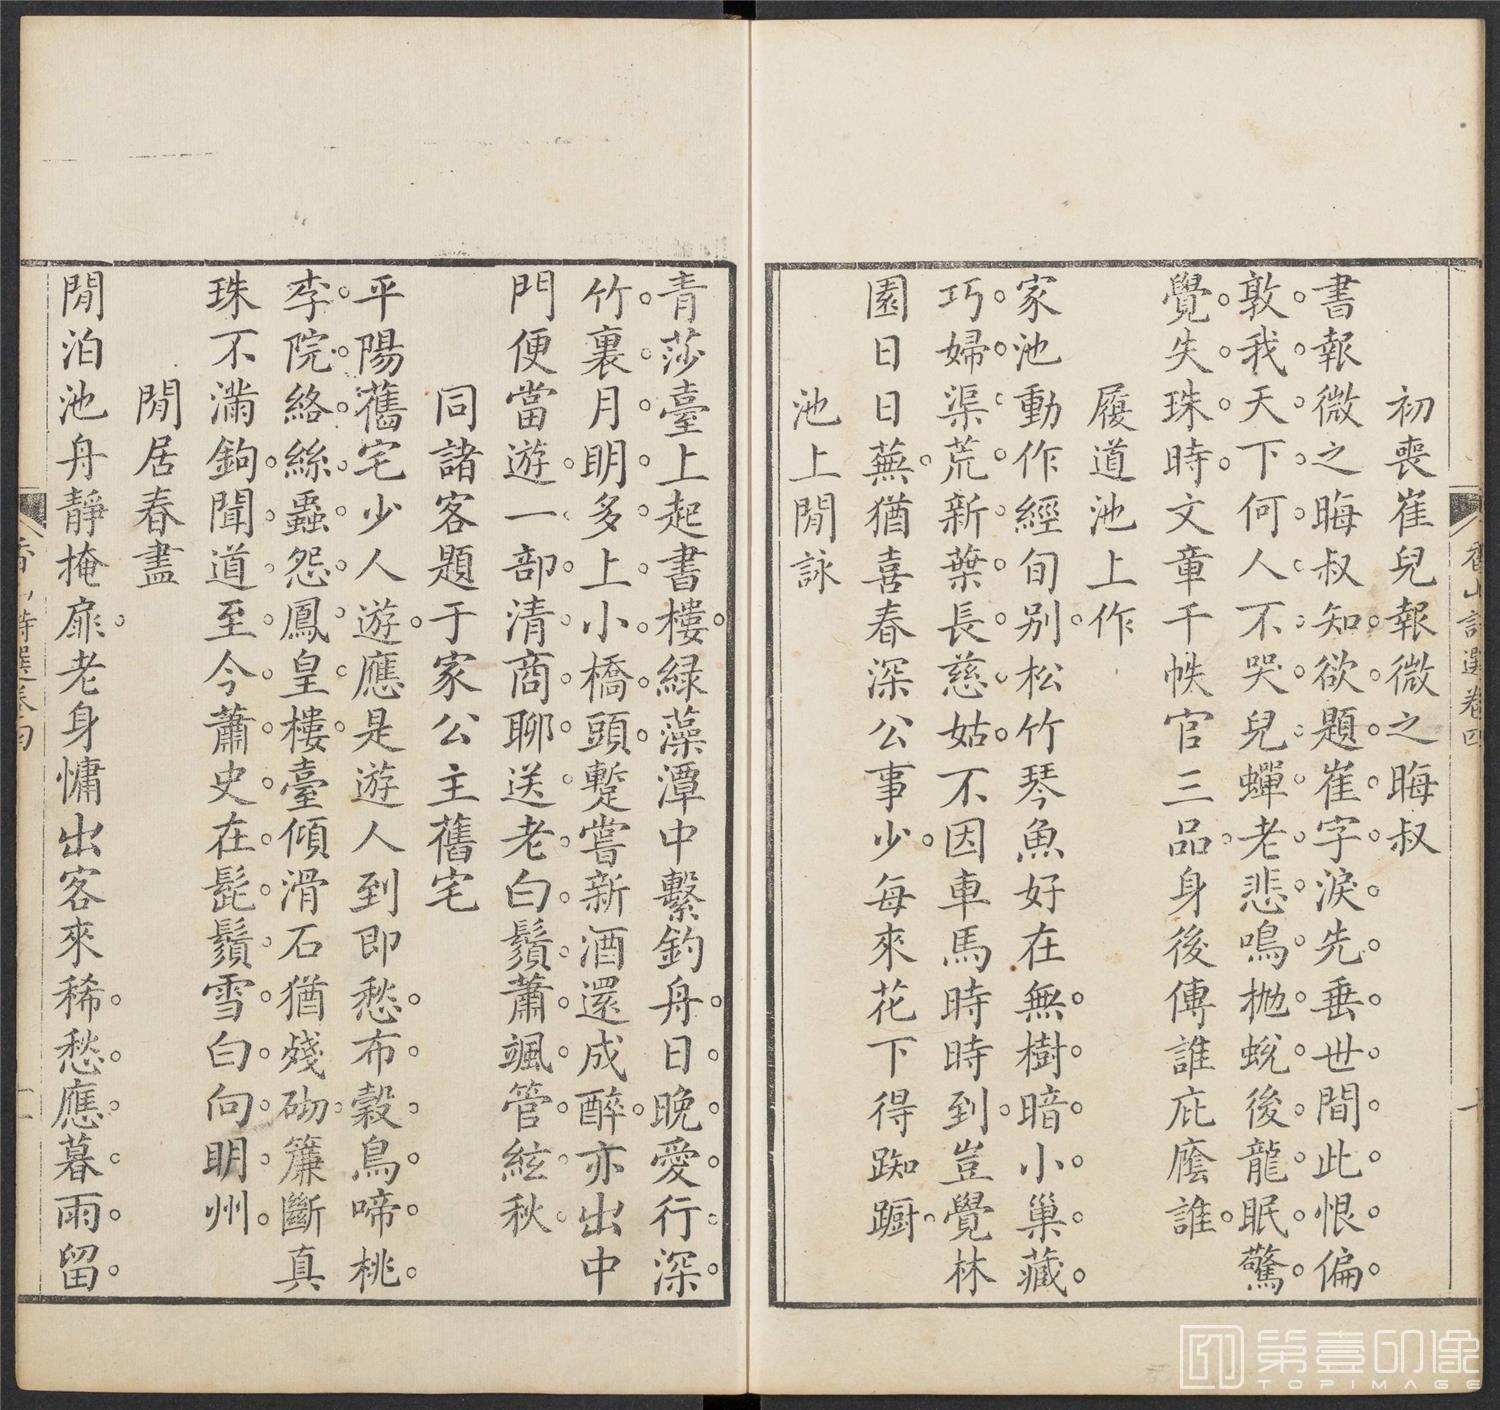 初喪崔兒報微之晦叔
書報微之晦叔知欲題崔字淚先垂世間此恨偏
敦我天下何人不哭兒蟬老悲鳴拋蛻後龍眠驚
覺失珠時文章千帙官三品身後傳誰庇廕誰
履道池上作
家池動作經旬別松竹琴魚好在無樹暗小巢藏
巧婦渠荒新葉長慈姑不因車馬時時到豈覺林
園日日蕪猶喜春深公事少每來花下得踟躕
池上閒詠
青莎臺上起書樓綠藻潭中繫釣舟日晚愛行深
竹裏月明多上小橋頭蹔嘗新酒還成醉亦出中
門便當遊一部清商聊送老白鬚蕭颯管絃秋
同諸客題于家公主舊宅
平陽舊宅少人遊應是遊人到即愁布穀鳥啼桃
李院絡絲蟲怨鳳皇樓臺傾滑石猶殘砌簾斷真
珠不滿鉤聞道至今蕭史在髭鬚雪白向明州
閒居春盡
閒泊池舟靜掩扉老身慵出客來稀愁應暮雨留
香山詩選卷四
香山詩選卷四
第壹印像
TOPIMAGE